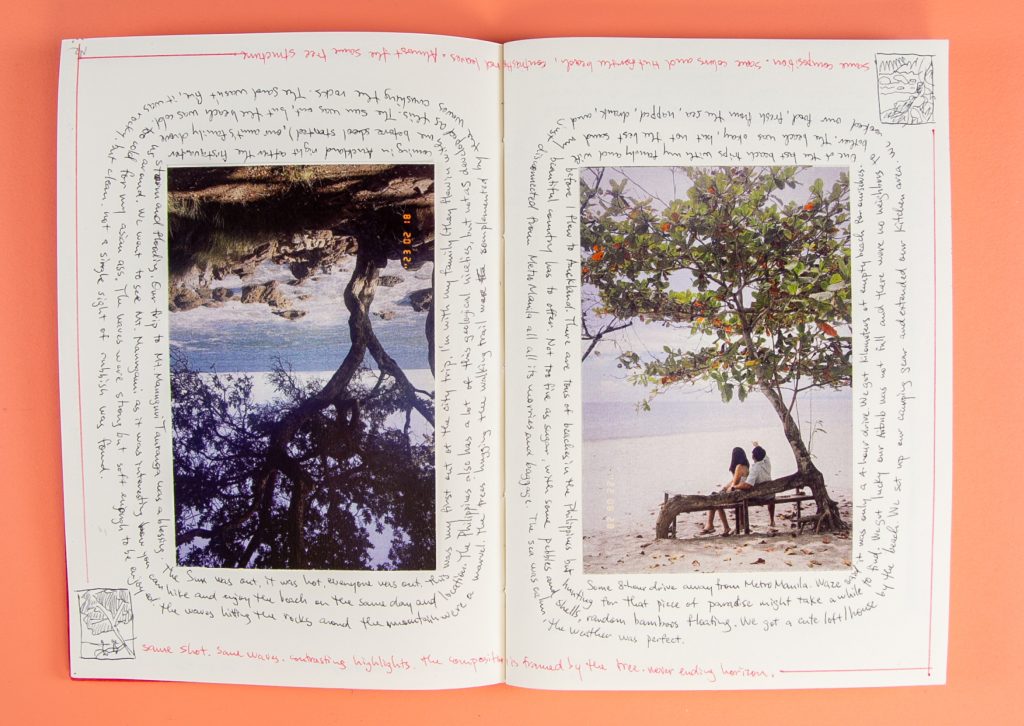 same composition. same colors and
beach, contrasting
waves. Almost the same tree structure.
coming in Auckland right after the first quarter
storm and flooding. Our trip to Mt. Maunganui Tauranga was a blessing.
The sun was out, it was hot, everyone was out.
was my first out of the city trip. I'm with my family (they flew in
me before school started), our aunt's family drove
to
around. We want to see Mt. Maunganui as it was interesting how you
can hike and enjoy the beach on the same day and location.
The Philippines also has a lot of this geological niceties, but not as developed
as this. The sun was out, but the beach was cold
cold for my asian ass. The waves were strong but soft enough to be enjoyed
the waves hitting the rocks around the mountain were a
marvel. The trees hugging the walking trail were complemented by
waves crashing the rocks. The sand wasn't fine, it was
rocky but clean, not a single sight of rubbish was found.
One of the best beach trips with my family and
before I flew to Auckland. There are tons of beaches in the Philippines but
hunting for that piece of paradise might take a while
to find. We got lucky our Airbnb was not full and there were no neighbors
Some 8 hour drive away from Metro Manila.
it was only a 4 hour drive. We got kilometers of empty beach for ourselves
The beach was okay, but not the best sand
beautiful country has to offer. Not too fine as sugar, with some pebbles and
shells, random bamboos floating. We got a cute loft/house
by the beach. We set up our camping gear and extended our kitchen area.
cooked our food, fresh from the sea, napped, drank, and
disconnected from Metro Manila all all its worries and baggage. The sea was calm,
the weather was perfect.
same shot. same waves. contrasting highlights. the composition is framed by the tree. never ending horizon.